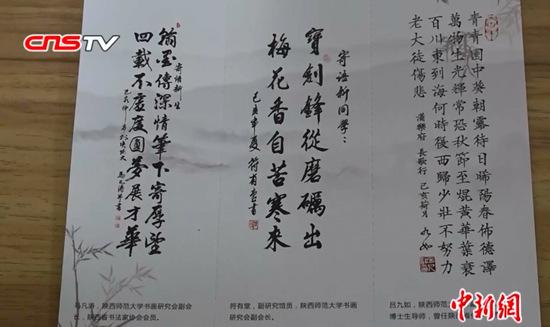 CNSTV
寄語新生
翰墨傳深情筆下寄厚望
四載不虛度圓夢展才華
寄語新同學：
寶劍鋒從磨礪出
梅花香自苦寒來
己亥年夏 符有堂書
青青園中葵朝露待日晞陽春佈德澤
萬物生光輝常恐秋節至焜黃華葉衰
百川東到海何時復西歸少壯不努力
老大徒傷悲 漢樂府 長歌行 己亥荷月 九如
马凡涛，陕西师范大学书画研究会副会
长，陕西省书法家协会会员。
符有堂，副研究馆员，陕西师范大学书画
研究会副会长。
吕九如，陕西师范大
博士生导师，曾任陕
中新網